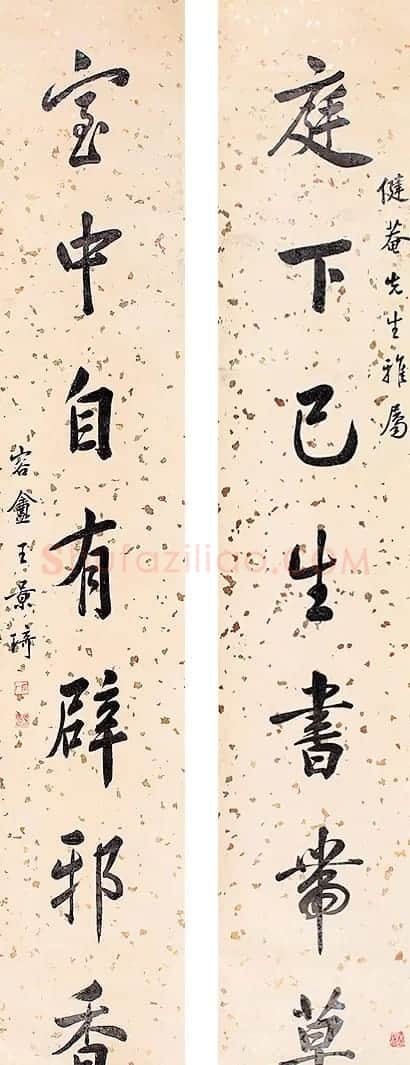 庭下已生書帶草
健菴先生雅屬
室中自有辟邪香
容盦王景琦
Shufaziliao.COM